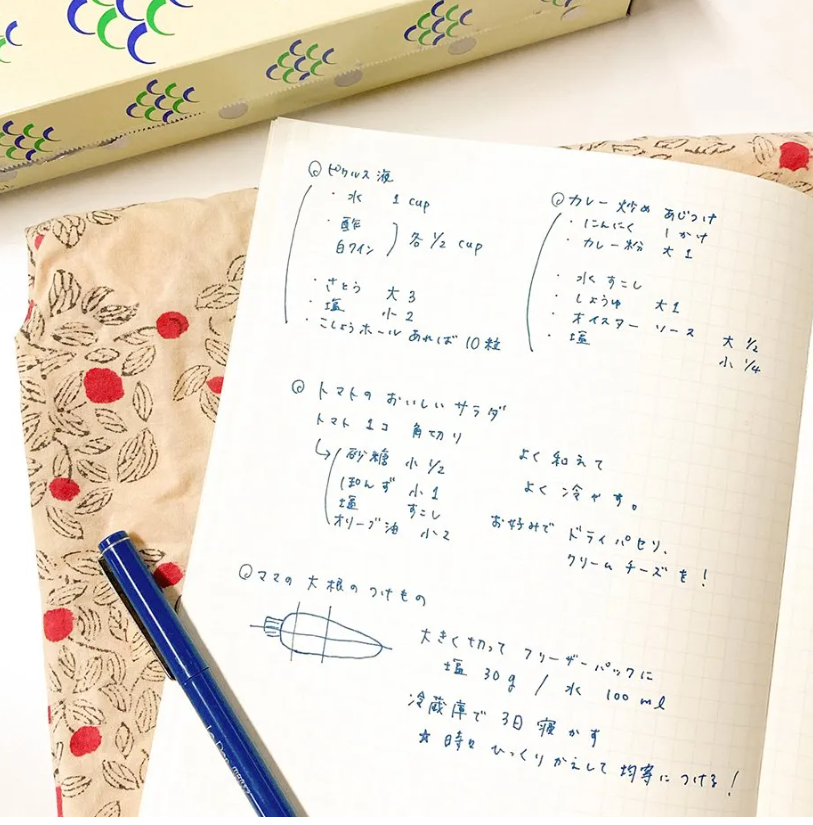 ピクルス液
・水 1 cup
・酢
白ワイン
各 1/2 cup
・さとう 大3
・塩 小2
・こしょうホール あれば 10粒
カレー炒め あじつけ
・にんにく 1かけ
・カレー粉 大1
・水 すこし
・しょうゆ 大1
・オイスターソース 大1/2
・塩 小1/4
トマトのおいしいサラダ
トマト 1コ 角切り
↳ 砂糖 小1/2
ぽんず 小1
塩 すこし
オリーブ油 小2
よく和えて
よく冷やす。
お好みで ドライパセリ、
クリームチーズを!
ママの大根のつけもの
大きく切って フリーザーパックに
塩 30g / 水 100ml
冷蔵庫で 3日 寝かす
☆時々 ひっくりかえして 均等につける!
Le Pen